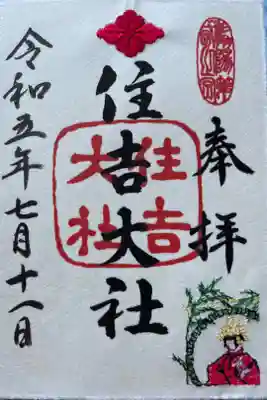 奉拝
住吉大社
住吉大社
令和五年七月十八日